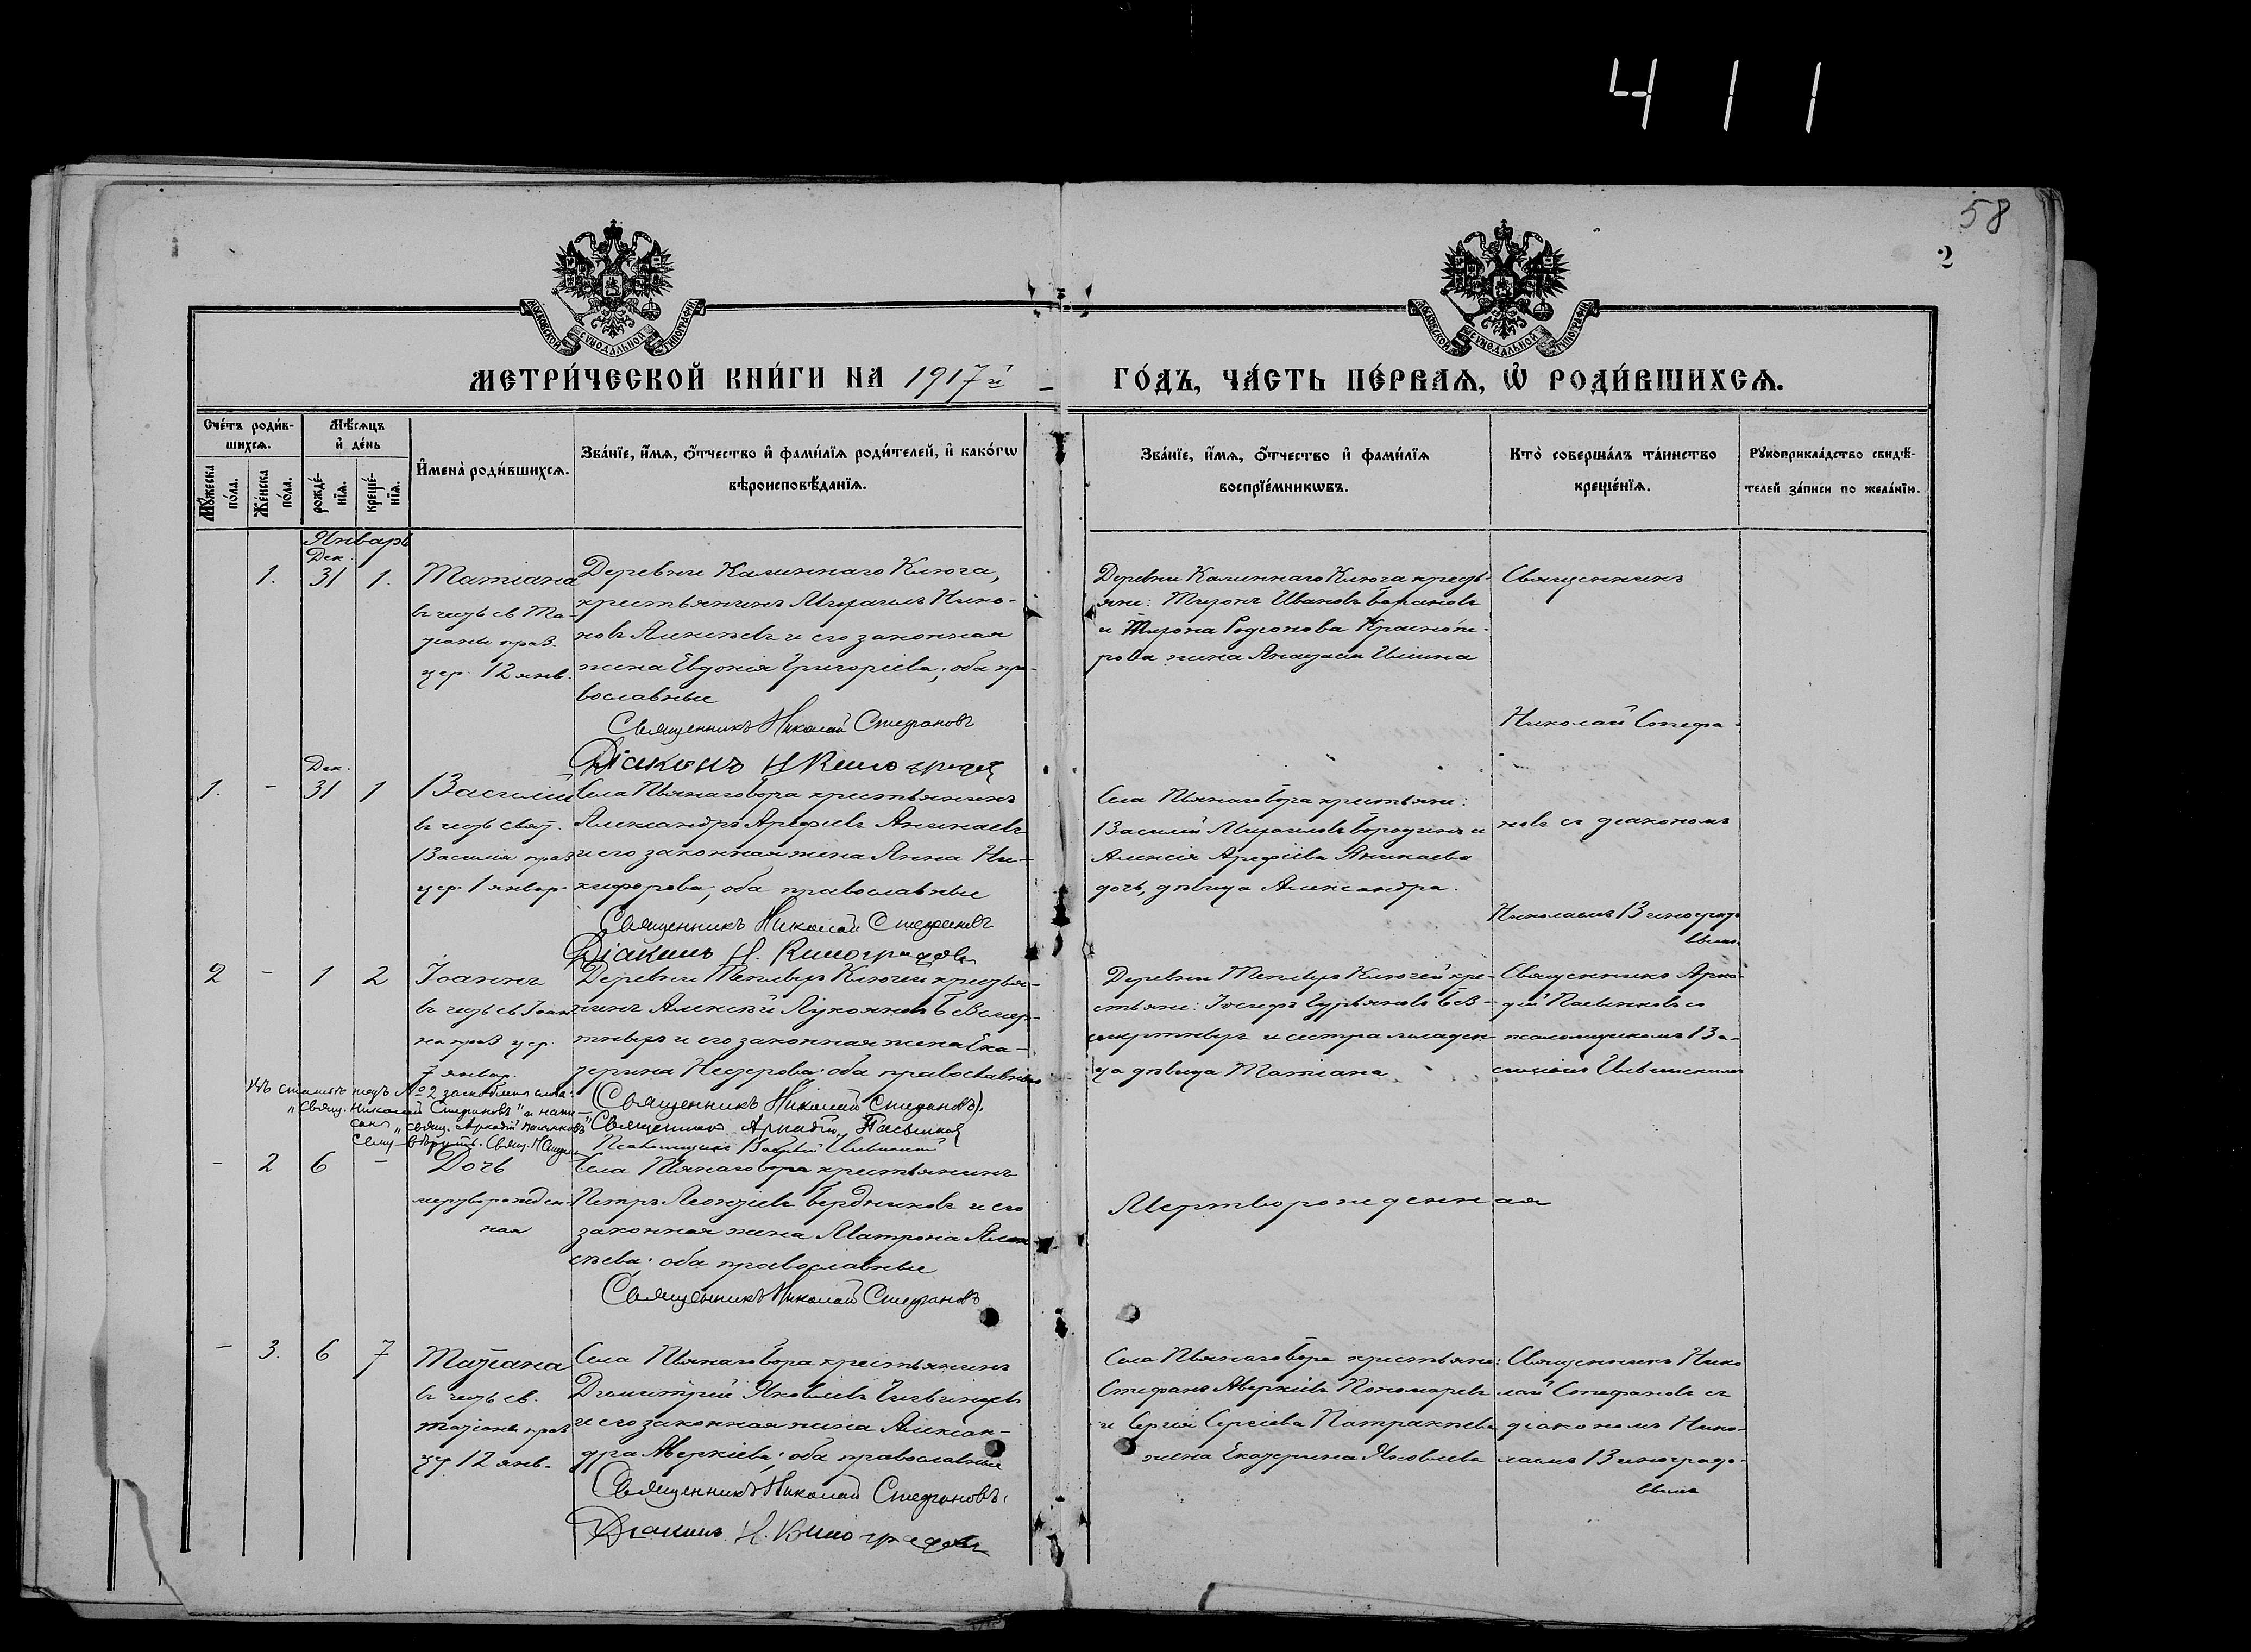 4 1 1
58
2
МОСКОВСКОЙ СУНОДАЛЬНОЙ ТИПОГРАФІИ
МОСКОВСКОЙ СУНОДАЛЬНОЙ ТИПОГРАФІИ
МЕТРИ́ЧЕСКОЙ КНИ́ГИ НА 1917 й
ГО́ДЪ, ЧА́СТЬ ПЕ́РВАѦ, Ѽ РОДИ́ВШИХСѦ.
Сче́тъ роди́в-
шихсѧ.
Мѣ́сѧцъ
и҆ де́нь
Мꙋ́жеска
по́ла.
Же́нска
по́ла.
рожде́-
нїѧ.
креще́-
нїѧ.
И҆мена̀ роди́вшихсѧ.
Зва́нїе, и҆́мѧ, ѻ҆́тчество и҆ фами́лїѧ роди́телей, и҆ како́гѡ
вѣроисповѣ́данїѧ.
Зва́нїе, и҆́мѧ, ѻ҆́тчество и҆ фами́лїѧ
воспрїе́мникѡвъ.
Кто̀ соверша́лъ та́инство
креще́нїѧ.
Рꙋкоприкла́дство свидѣ́-
телей за́писи по жела́нїю.
Январь
Дек.
1. 31 1.
Татіана
въ честь св. Та-
тіаны празд.
цер. 12 янв.
Деревни Калиннаго Ключа,
крестьянинъ Михаилъ Нико-
новъ Алексѣевъ и его законная
жена Евдокія Григоріева; оба пра-
вославные
Священникъ Николай Стефановъ
Діаконъ Н Виноградов
Деревни Калиннаго Ключа кресть-
яне: Миронъ Ивановъ Барановъ
и Мирона Родіонова Краснопе-
рова жена Анастасія Ильина
Священникъ
Николай Стефа-
Дек.
1. - 31 1
Василій
въ честь свят.
Василія празд
цер. 1 январ.
Села Пьянаго бора крестьянинъ
Александръ Арефіевъ Аникаевъ
и его законная жена Анна Ни-
кифорова; оба православные
Священникъ Николай Стефановъ
Діаконъ Н. Виноградовъ
Села Пьянаго бора крестьяне:
Василій Михаиловъ Бородинъ и
Алексія Арефіева Аникаева
дочь, дѣвица Александра.
новъ съ діакономъ
Николаемъ Виноградо
вымъ
2 - 1 2
Іоаннъ
въ честь св Іоан
на празд цер.
7 январ.
Деревни Ключей крестья-
нинъ Алексѣй Лукояновъ Безсмер-
тныхъ и его законная жена Ека-
терина Нестерова: оба православные
(Священникъ Николай Стефановъ).
Священник Аркадій
Псаломщикъ Василій Ильинскій
Деревни Ключей кре-
стьяне: Іосифъ Гурьяновъ без-
смертныхъ и сестра младен
ца дѣвица Татіана
Священникъ Арка-
дій съ
псаломщикомъ Ва-
силіемъ Ильинскимъ
Въ статьѣ подъ № 2 слова:
"Свящ. Николай Стефановъ" и напи-
сано "свящ. Аркадій
сему вѣрить. Свящ. Н Стефановъ
- 2 6 -
Дочь
мертворожден-
ная
Села Пьянаго бора крестьянинъ
Петръ Леонтіевъ Бердниковъ и его
законная жена Матрона Алек
сѣева: оба православные
Священникъ Николай Стефановъ
Мертворожденная
- 3. 6 7
Татіана
въ честь св.
Татіаны празд
цер 12 янв.
Села Пьянаго бора крестьянинъ
Димитрій Яковлевъ
и его законная жена Алексан-
дра Аверкіева; оба православные
Священникъ Николай Стефановъ.
Діаконъ Н. Виноградовъ
Села Пьянаго бора крестьяне:
Стефанъ Аверкіевъ Пономаревъ
и Сергія Сергіева Патракѣева
жена Екатерина Яковлева
Священникъ Нико
лай Стефановъ съ
діакономъ Нико-
лаемъ Виноградо-
вымъ